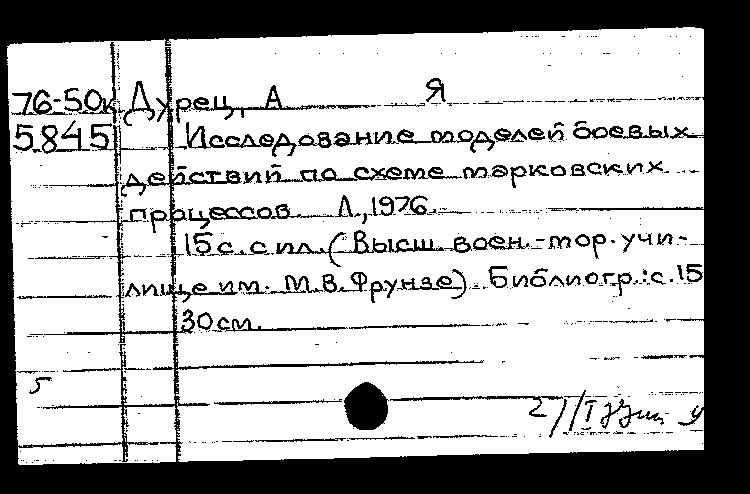 76-50к Дурец, А Я
5845 Исследование моделей боевых
действий по схеме марковских
процессов. Л., 1976.
15 с. с ил. (Высш. воен.-мор. учи-
лище им. М.В. Фрунзе). Библиогр.: с. 15
30 см.
5